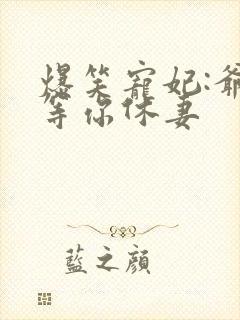 爆笑寵妃:爺
等你休妻
藍之顔